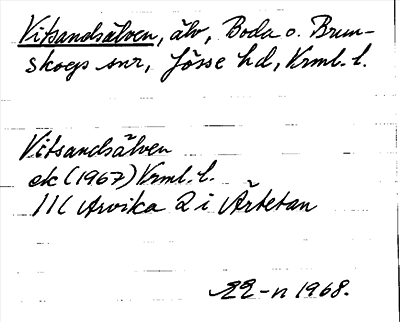 Vitsandsälven, älv, Boda o. Brun-
skogs snr, Jösse hd, Vrml. l.
Vitsandsälven
ek (1967) Vrml. l.
11C Arvika 2 i Ärtetan
EE-n 1968.